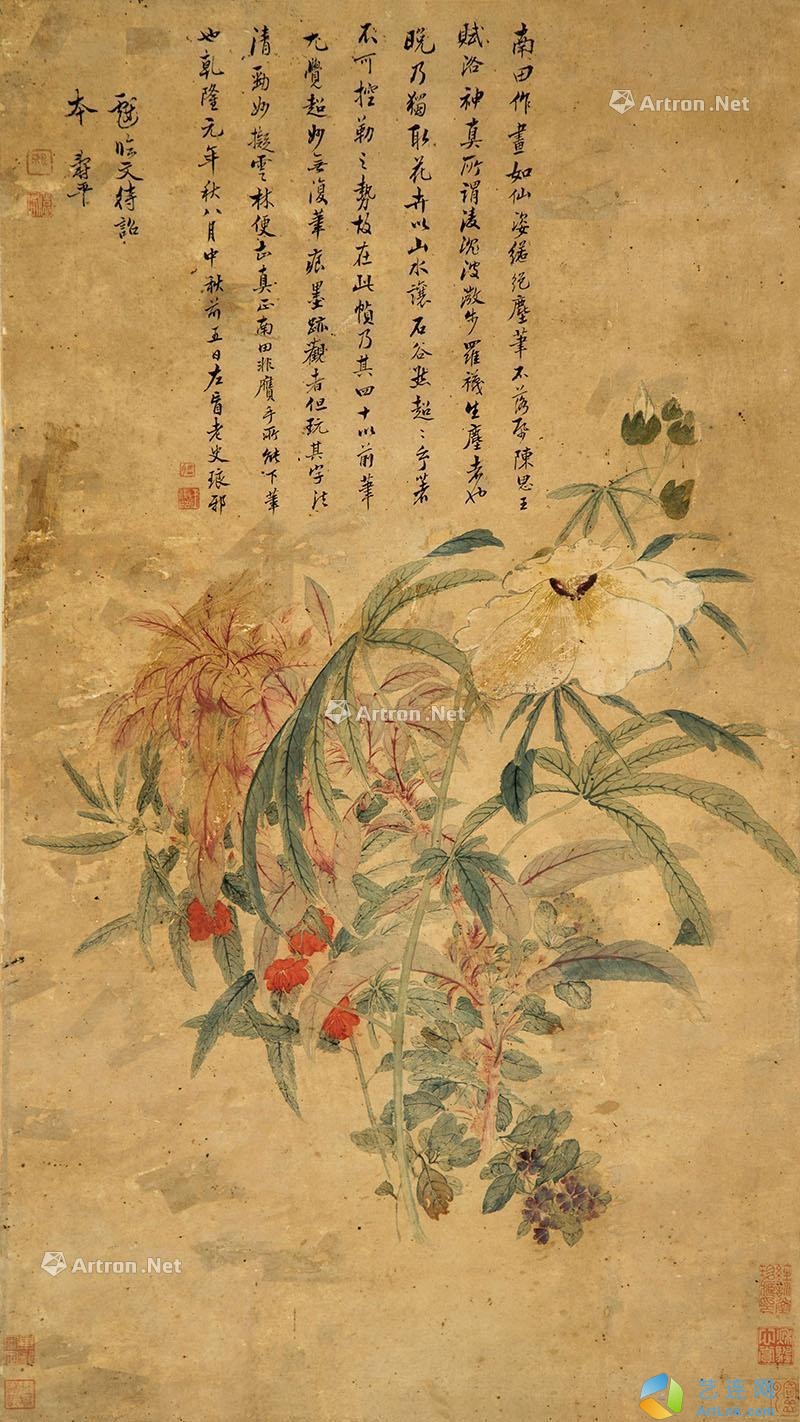 南田作畫如仙姿絕絕塵筆不落陳思王
賦洛神真所謂凌波微步羅襪生塵者也
晚乃獨取花卉以山水讓石谷然超超乎若
不可控勒之勢故在此幀乃其四十以前筆
尤覺超妙無復筆痕墨跡觀者但玩其字法
清勁妙擬雲林便知真正南田非贋手所能下筆
也乾隆元年秋八月中秋前五日左盲老史琅邪
戲臨文待詔
本 壽平
Artron.Net
Artron.Net
Artron.Net
艺连网
ArtLnn.Com